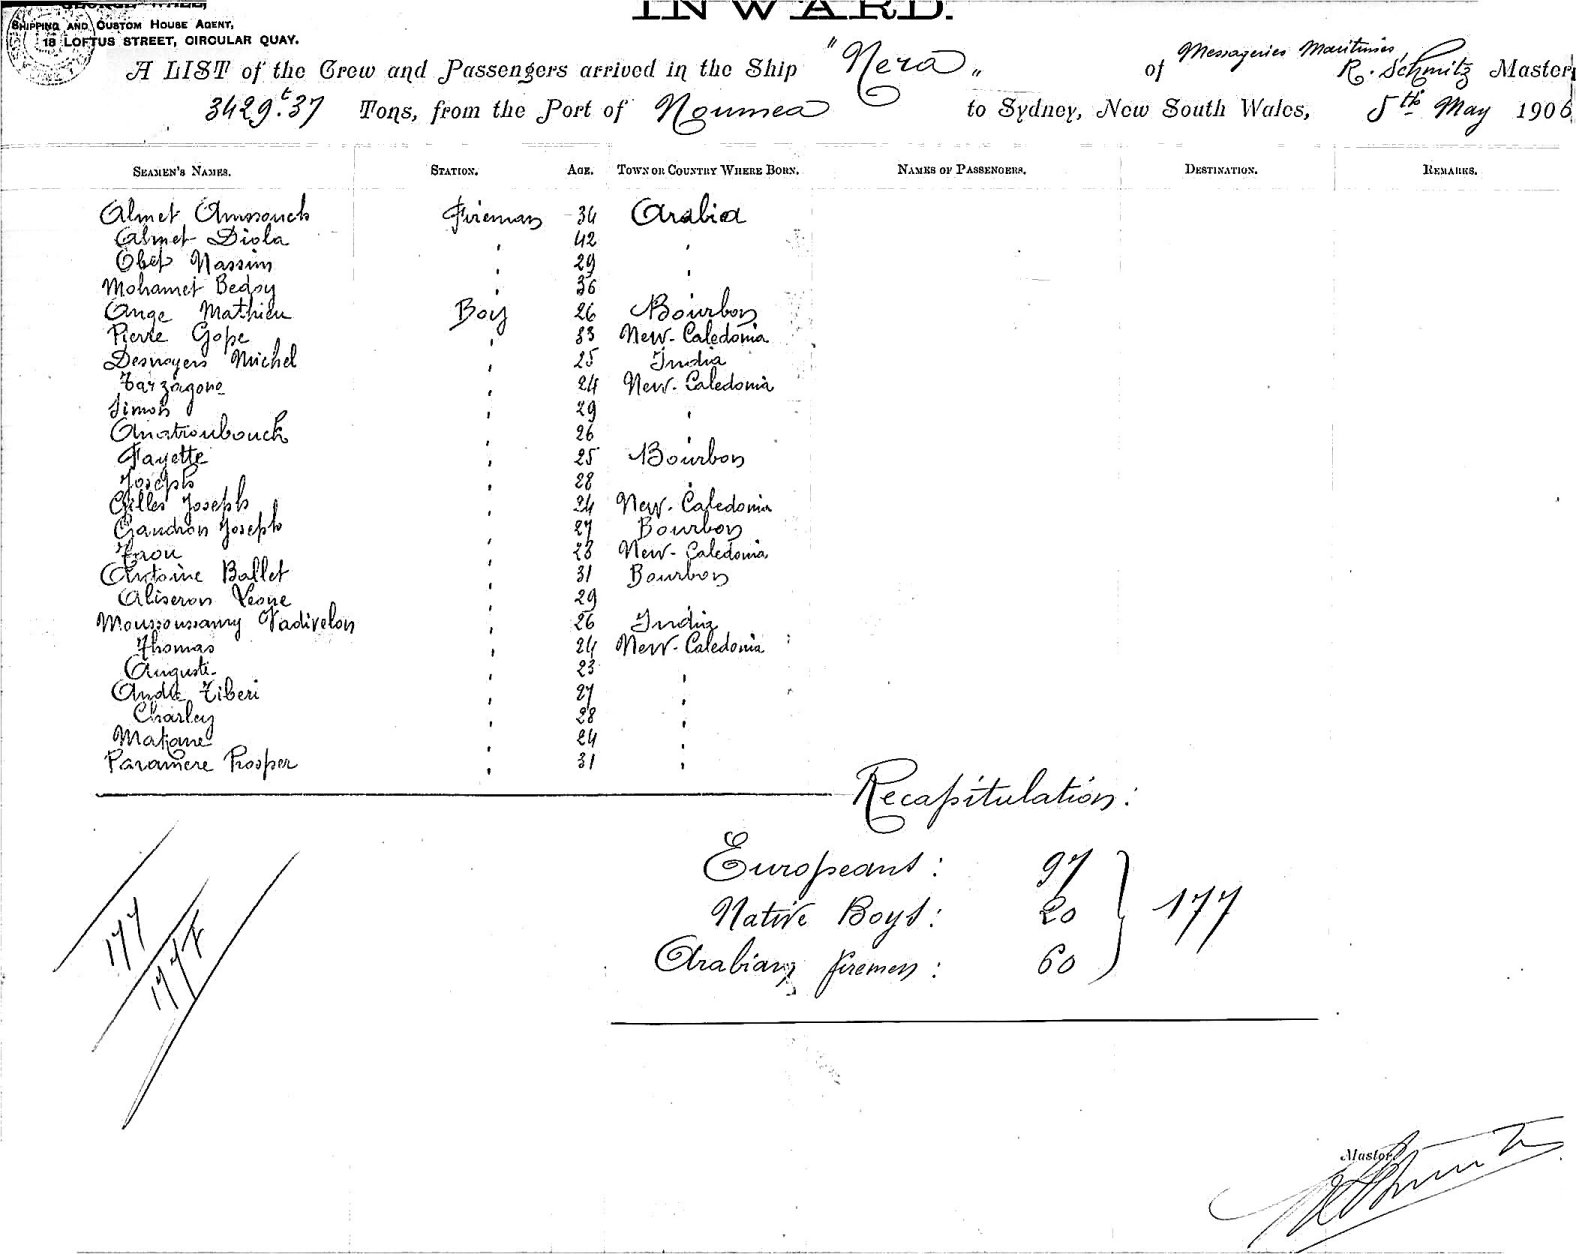 INWARD.
SHIPPING AND CUSTOM HOUSE AGENT,
18 LOFTUS STREET, CIRCULAR QUAY.
A LIST of the Crew and Passengers arrived in the Ship "Nera" of Messageries Maritimes, R. Schmitz Master,
3429.t37 Tons, from the Port of Noumea to Sydney, New South Wales, 5th May 1906
SEAMEN'S NAMES. STATION. AGE. TOWN OR COUNTRY WHERE BORN. NAMES OF PASSENGERS. DESTINATION. REMARKS.
Ahmet Amssouch Fireman 34 Arabia
Ahmet Diola " 42 "
Obet Nassim " 29 "
Mohamet Bedoy " 36 "
Ange Mathieu Boy 26 Bourbon
Pierre Gope " 33 New-Caledonia
Desnoyers Michel " 25 India
Tarzagone " 24 New-Caledonia
Simon " 29 "
Anatroubouck " 26 "
Fayette " 25 Bourbon
Joseph " 28 "
Gilles Joseph " 24 New-Caledonia
Gaudron Joseph " 27 Bourbon
" 23 New-Caledonia
Antoine Ballet " 31 Bourbon
Aliseron Leone " 29 "
Moussoussamy Vadivelou " 26 India
Thomas " 24 New-Caledonia
Auguste " 23 "
André Tiberi " 27 "
Charley " 28 "
Makane " 24 "
Paramere Prosper " 31 "
Recapitulation:
Europeans: 97
Native Boys: 20 177
Arabian firemen: 60
177
177
Master